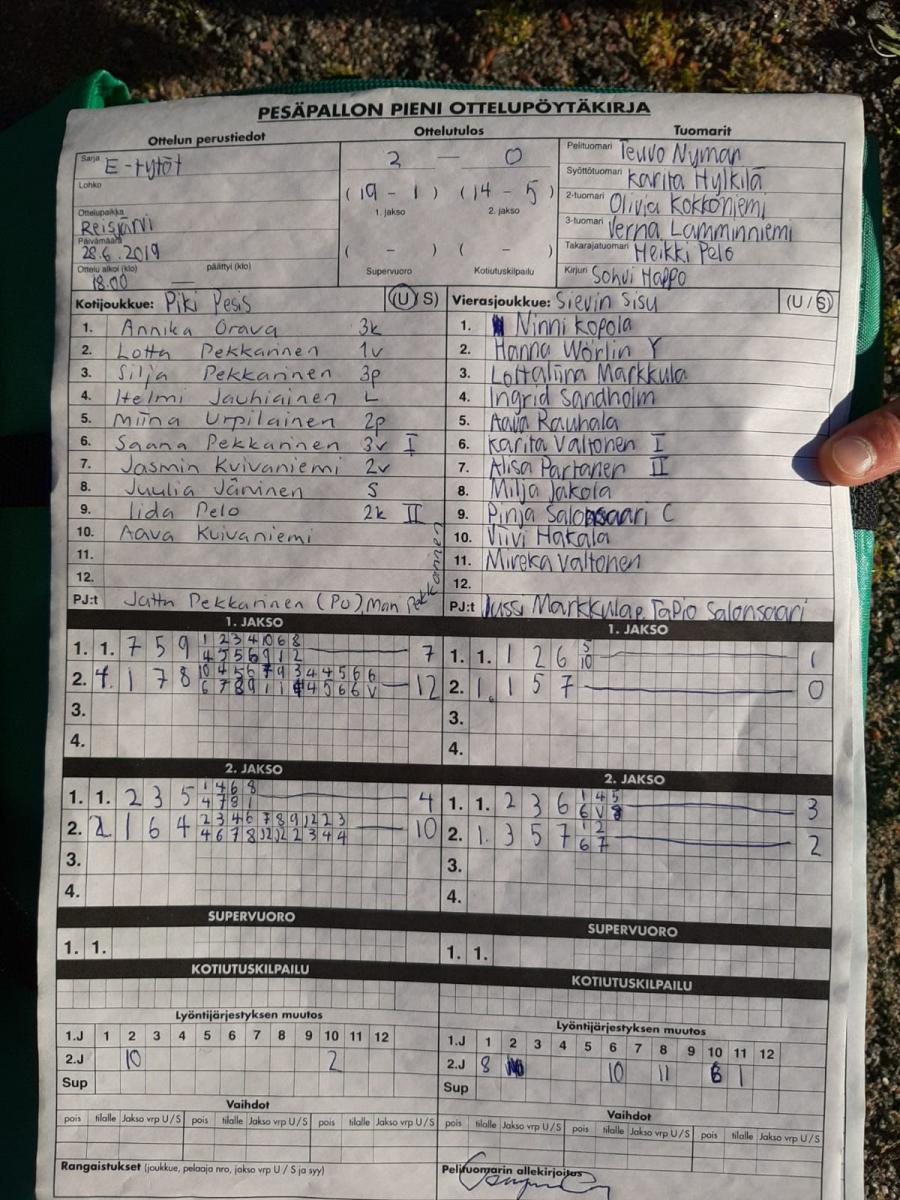 PESÄPALLON PIENI OTTELUPÖYTÄKIRJA
Ottelun perustiedot
Sarja E-tytöt
Lohko
Ottelupaikka
Reisjärvi
Päivämäärä
28.6.2019
Ottelu alkoi (klo) päättyi (klo)
18.00 —
Ottelutulos
2 — 0
(19 - 1) (14 - 5)
1. jakso 2. jakso
( - ) ( - )
Supervuoro Kotiutuskilpailu
Tuomarit
Pelituomari Teuvo Nyman
Syöttötuomari Karita Hylkilä
2-tuomari Olivia Kokkoniemi
3-tuomari Verna Lamminniemi
Takarajatuomari Heikki Pelo
Kirjuri Sohvi Happo
Kotijoukkue: Piki Pesis (U/S)
1. Annika Orava 3k
2. Lotta Pekkarinen 1v
3. Silja Pekkarinen 3p
4. Helmi Jauhiainen L
5. Miina Urpilainen 2p
6. Saana Pekkarinen 3v I
7. Jasmin Kuivaniemi 2v
8. Juulia Järvinen S
9. Iida Pelo 2k II
10. Aava Kuivaniemi
11.
12.
PJ:t Pekkarinen (PJ),
Vierasjoukkue: Sievin Sisu (U/S)
1. Ninni Kopola
2. Hanna Wörlin Y
3. Lottaliina Markkula
4. Ingrid Sandholm
5. Aava Rauhala
6. Karita Valtonen I
7. Alisa Partanen II
8. Milja Jakola
9. Pinja Salonsaari C
10. Viivi Hakala
11. Mireka Valtonen
12.
PJ:t Jussi Markkula Tapio Salonsaari
1. JAKSO
1. 1. 7 5 9 1 2 3 4 10 6 8 7
4 5 5 6 9 1 2
2. 4. 1 7 8 12
3.
4.
1. JAKSO
1. 1. 1 2 6 5 1
10
2. 1. 1 5 7 0
3.
4.
2. JAKSO
1. 1. 2 3 5 1 4 6 8 4
4 7 8 1
2. 2. 1 6 4 2 3 4 6 7 8 9 12 2 3 10
3.
4.
2. JAKSO
1. 1. 2 3 6 1 4 5 3
6 V 8
2. 1. 3 5 7 1 2 2
6 7
3.
4.
SUPERVUORO
1. 1.
SUPERVUORO
1. 1.
KOTIUTUSKILPAILU
Lyöntijärjestyksen muutos
1.J 1 2 3 4 5 6 7 8 9 10 11 12
2.J 10 2
Sup
Vaihdot
pois tilalle Jakso vrp U/S pois tilalle Jakso vrp U/S pois tilalle Jakso vrp U/S
Rangaistukset (joukkue, pelaaja nro, jakso vrp U/S ja syy)
KOTIUTUSKILPAILU
Lyöntijärjestyksen muutos
1.J 1 2 3 4 5 6 7 8 9 10 11 12
2.J 8 10 11 6 1
Sup
Vaihdot
pois tilalle Jakso vrp U/S pois tilalle Jakso vrp U/S pois tilalle Jakso vrp U/S
Pelituomarin allekirjoitus